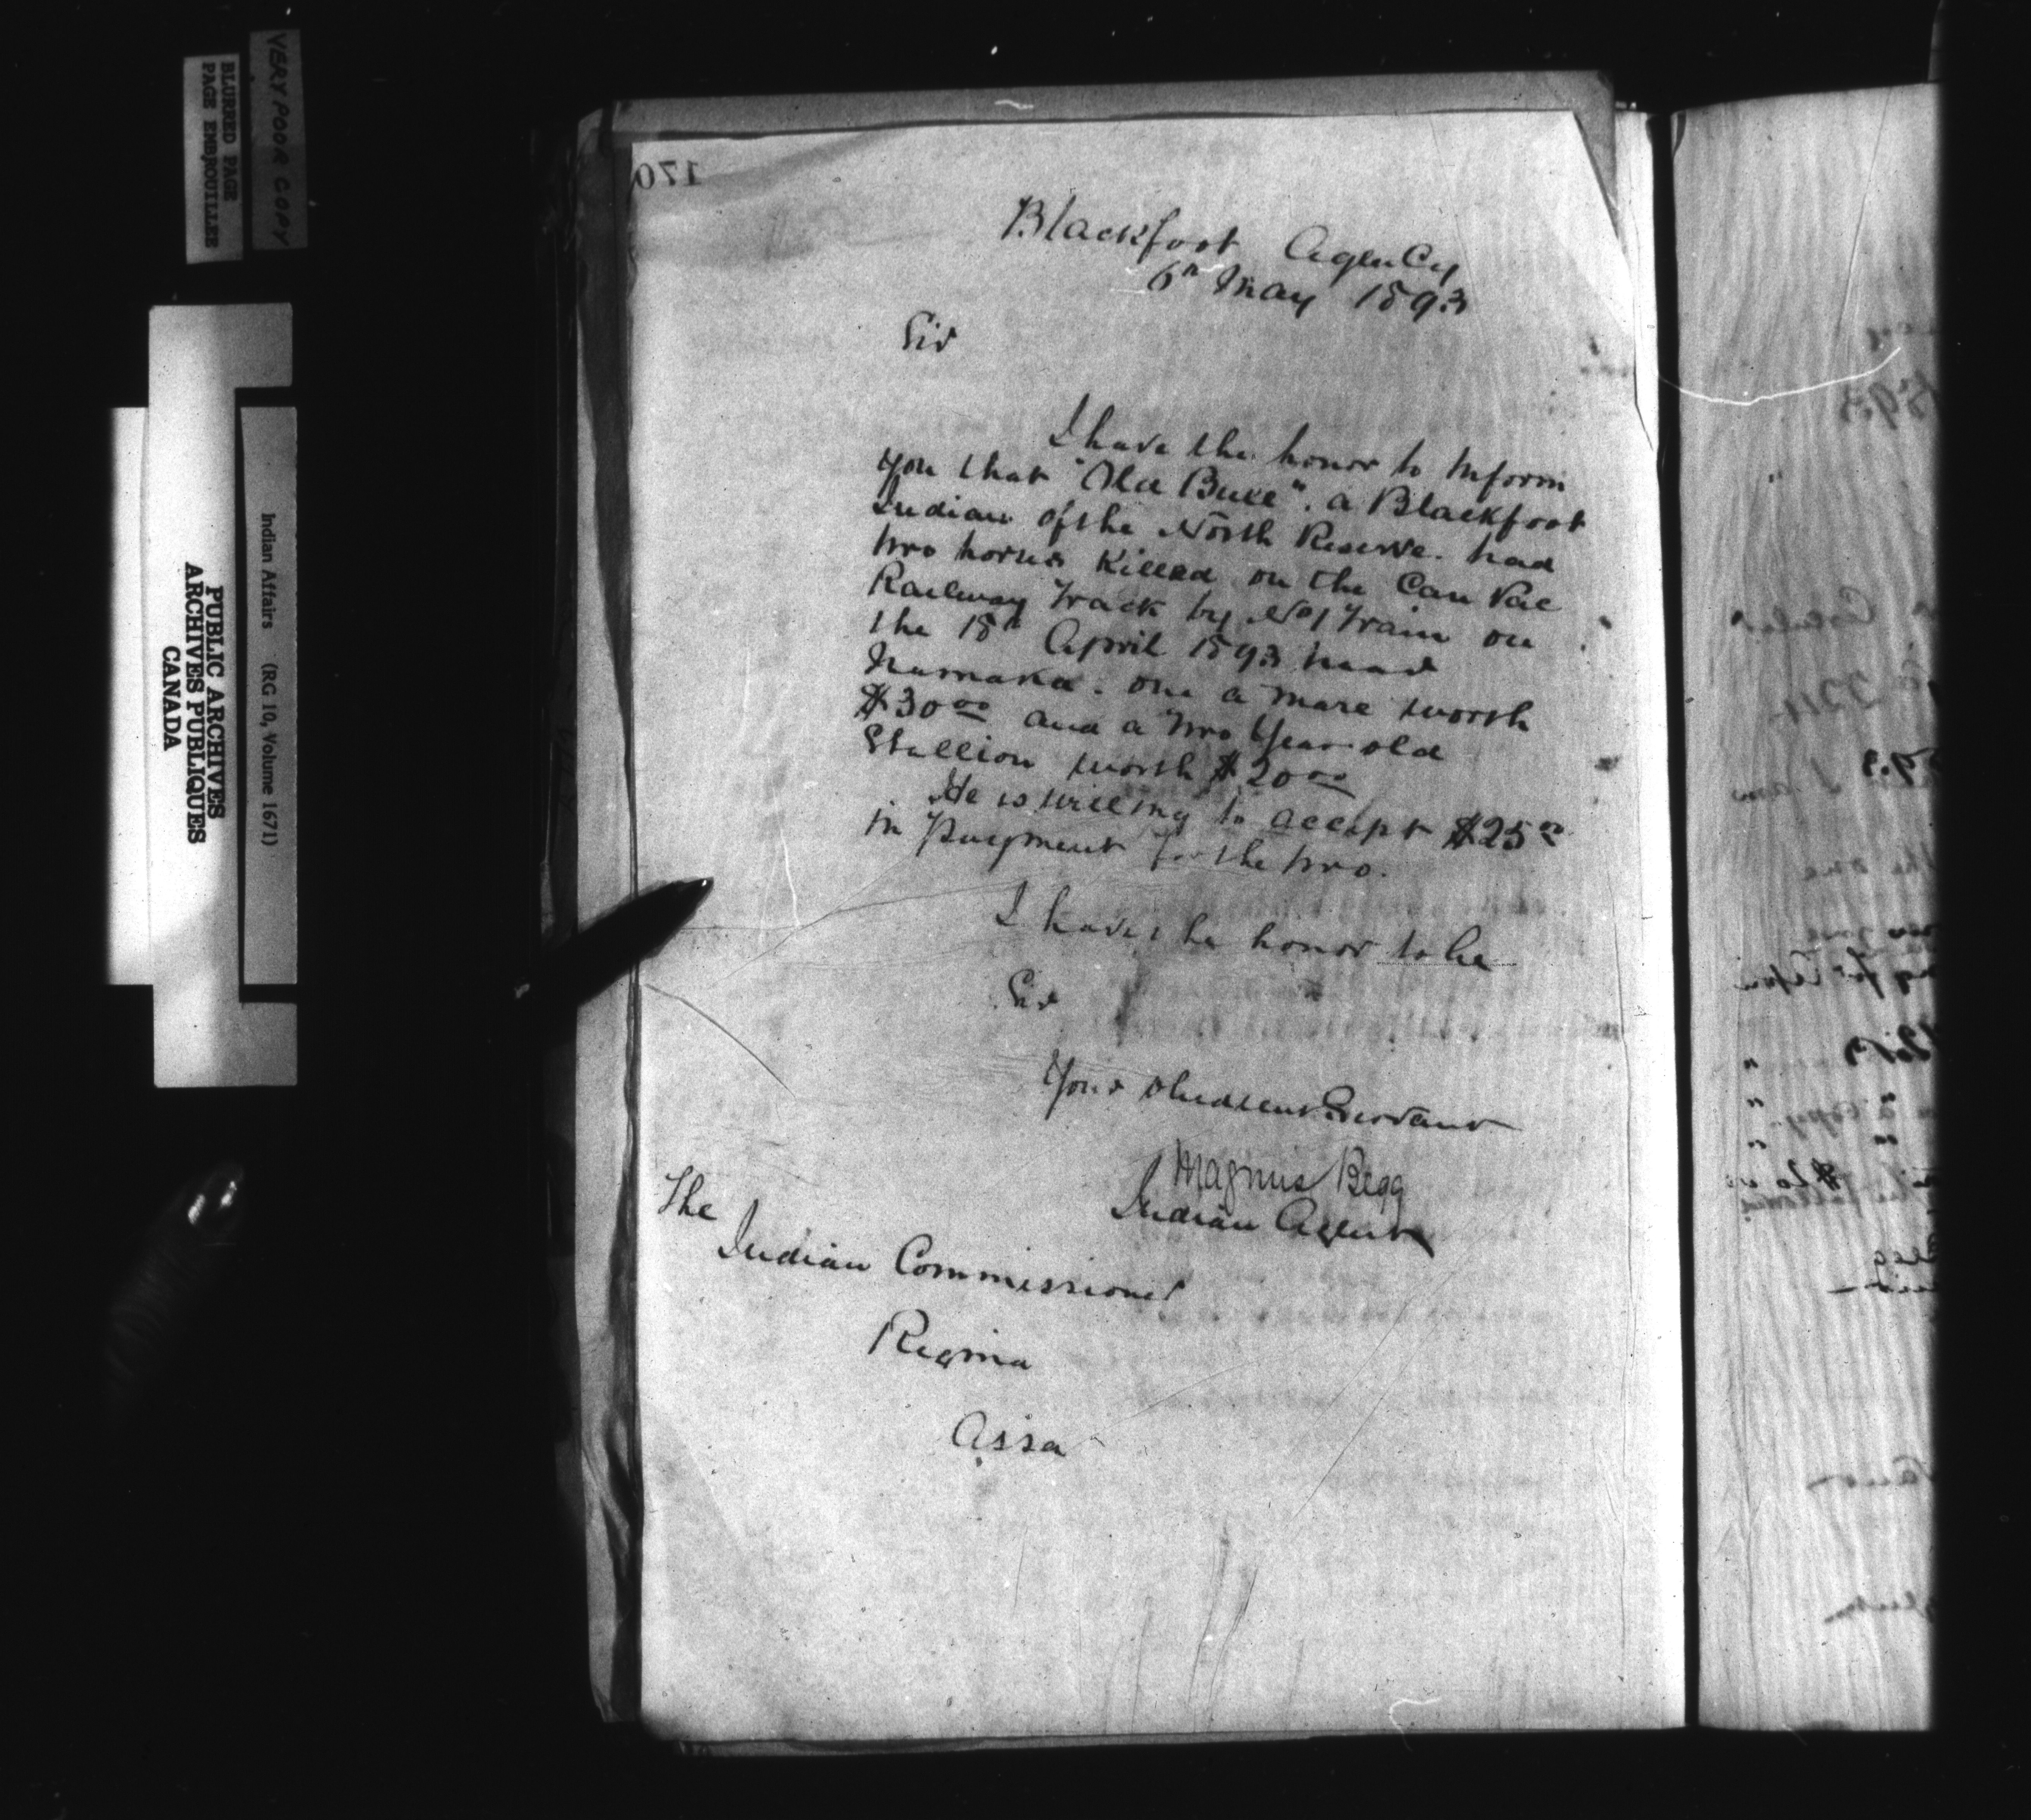 VERY POOR COPY
BLURRED PAGE
PAGE EMBROUILLEE
PUBLIC ARCHIVES
ARCHIVES PUBLIQUES
CANADA
Indian Affairs (RG 10, Volume 1671)
170
Blackfoot Agency
6th May 1893
Sir
I have the honor to inform
you that "Old Bull", a Blackfoot
Indian of the North Reserve. had
two horses killed on the Can Pac
Railway Track by No 1 Train on
the 18th April 1893 near
Namaka. one a mare worth
$30.00 and a two year old
Stallion worth $20.00
He is willing to accept $25.00
in payment for the two.
I have the honor to be
Sir
Your obedient Servant
Magnus Begg
Indian Agent
The
Indian Commissioner
Regina
Assa